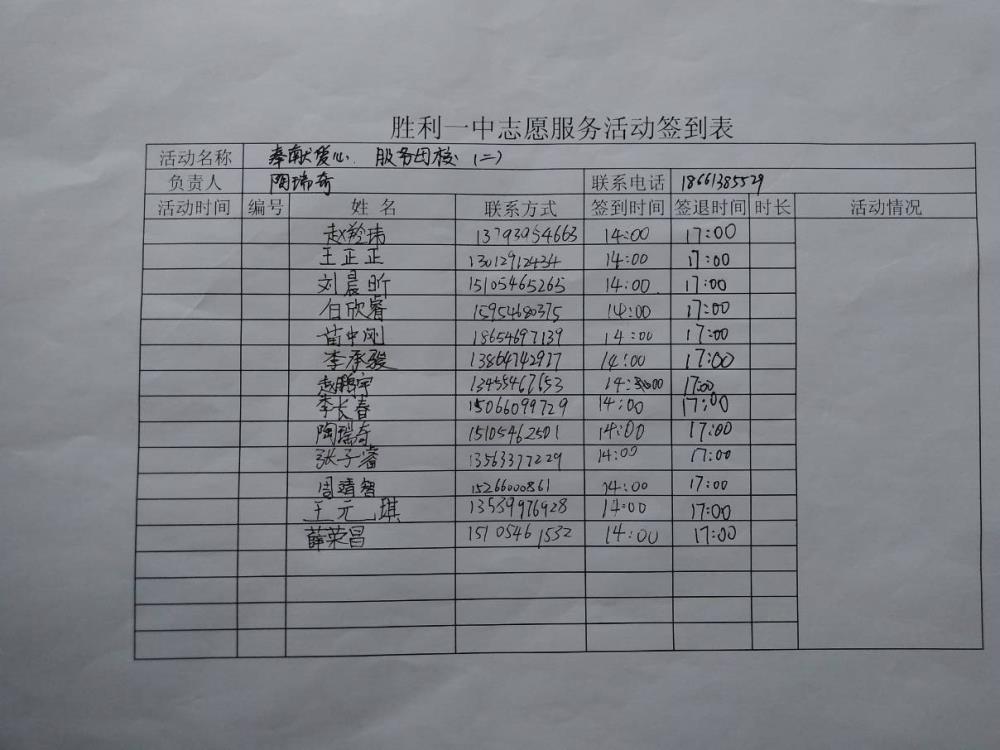 胜利一中志愿服务活动签到表
活动名称 奉献爱心 服务母校（二）
负责人 陶瑞奇 联系电话 18661385529
活动时间 编号 姓名 联系方式 签到时间 签退时间 时长 活动情况
赵羚玮 13793954663 14:00 17:00
王正正 13012912434 14:00 17:00
刘晨昕 15105465265 14:00 17:00
白欣睿 15954680375 14:00 17:00
苗中刚 18654697139 14:00 17:00
李承骏 13864742917 14:00 17:00
赵鹏宇 13455467653 14:00 17:00
李长春 15066099729 14:00 17:00
陶瑞奇 15105462501 14:00 17:00
张子睿 13563377229 14:00 17:00
周靖智 15266000861 14:00 17:00
王元琪 13539976928 14:00 17:00
薛荣昌 15105461532 14:00 17:00